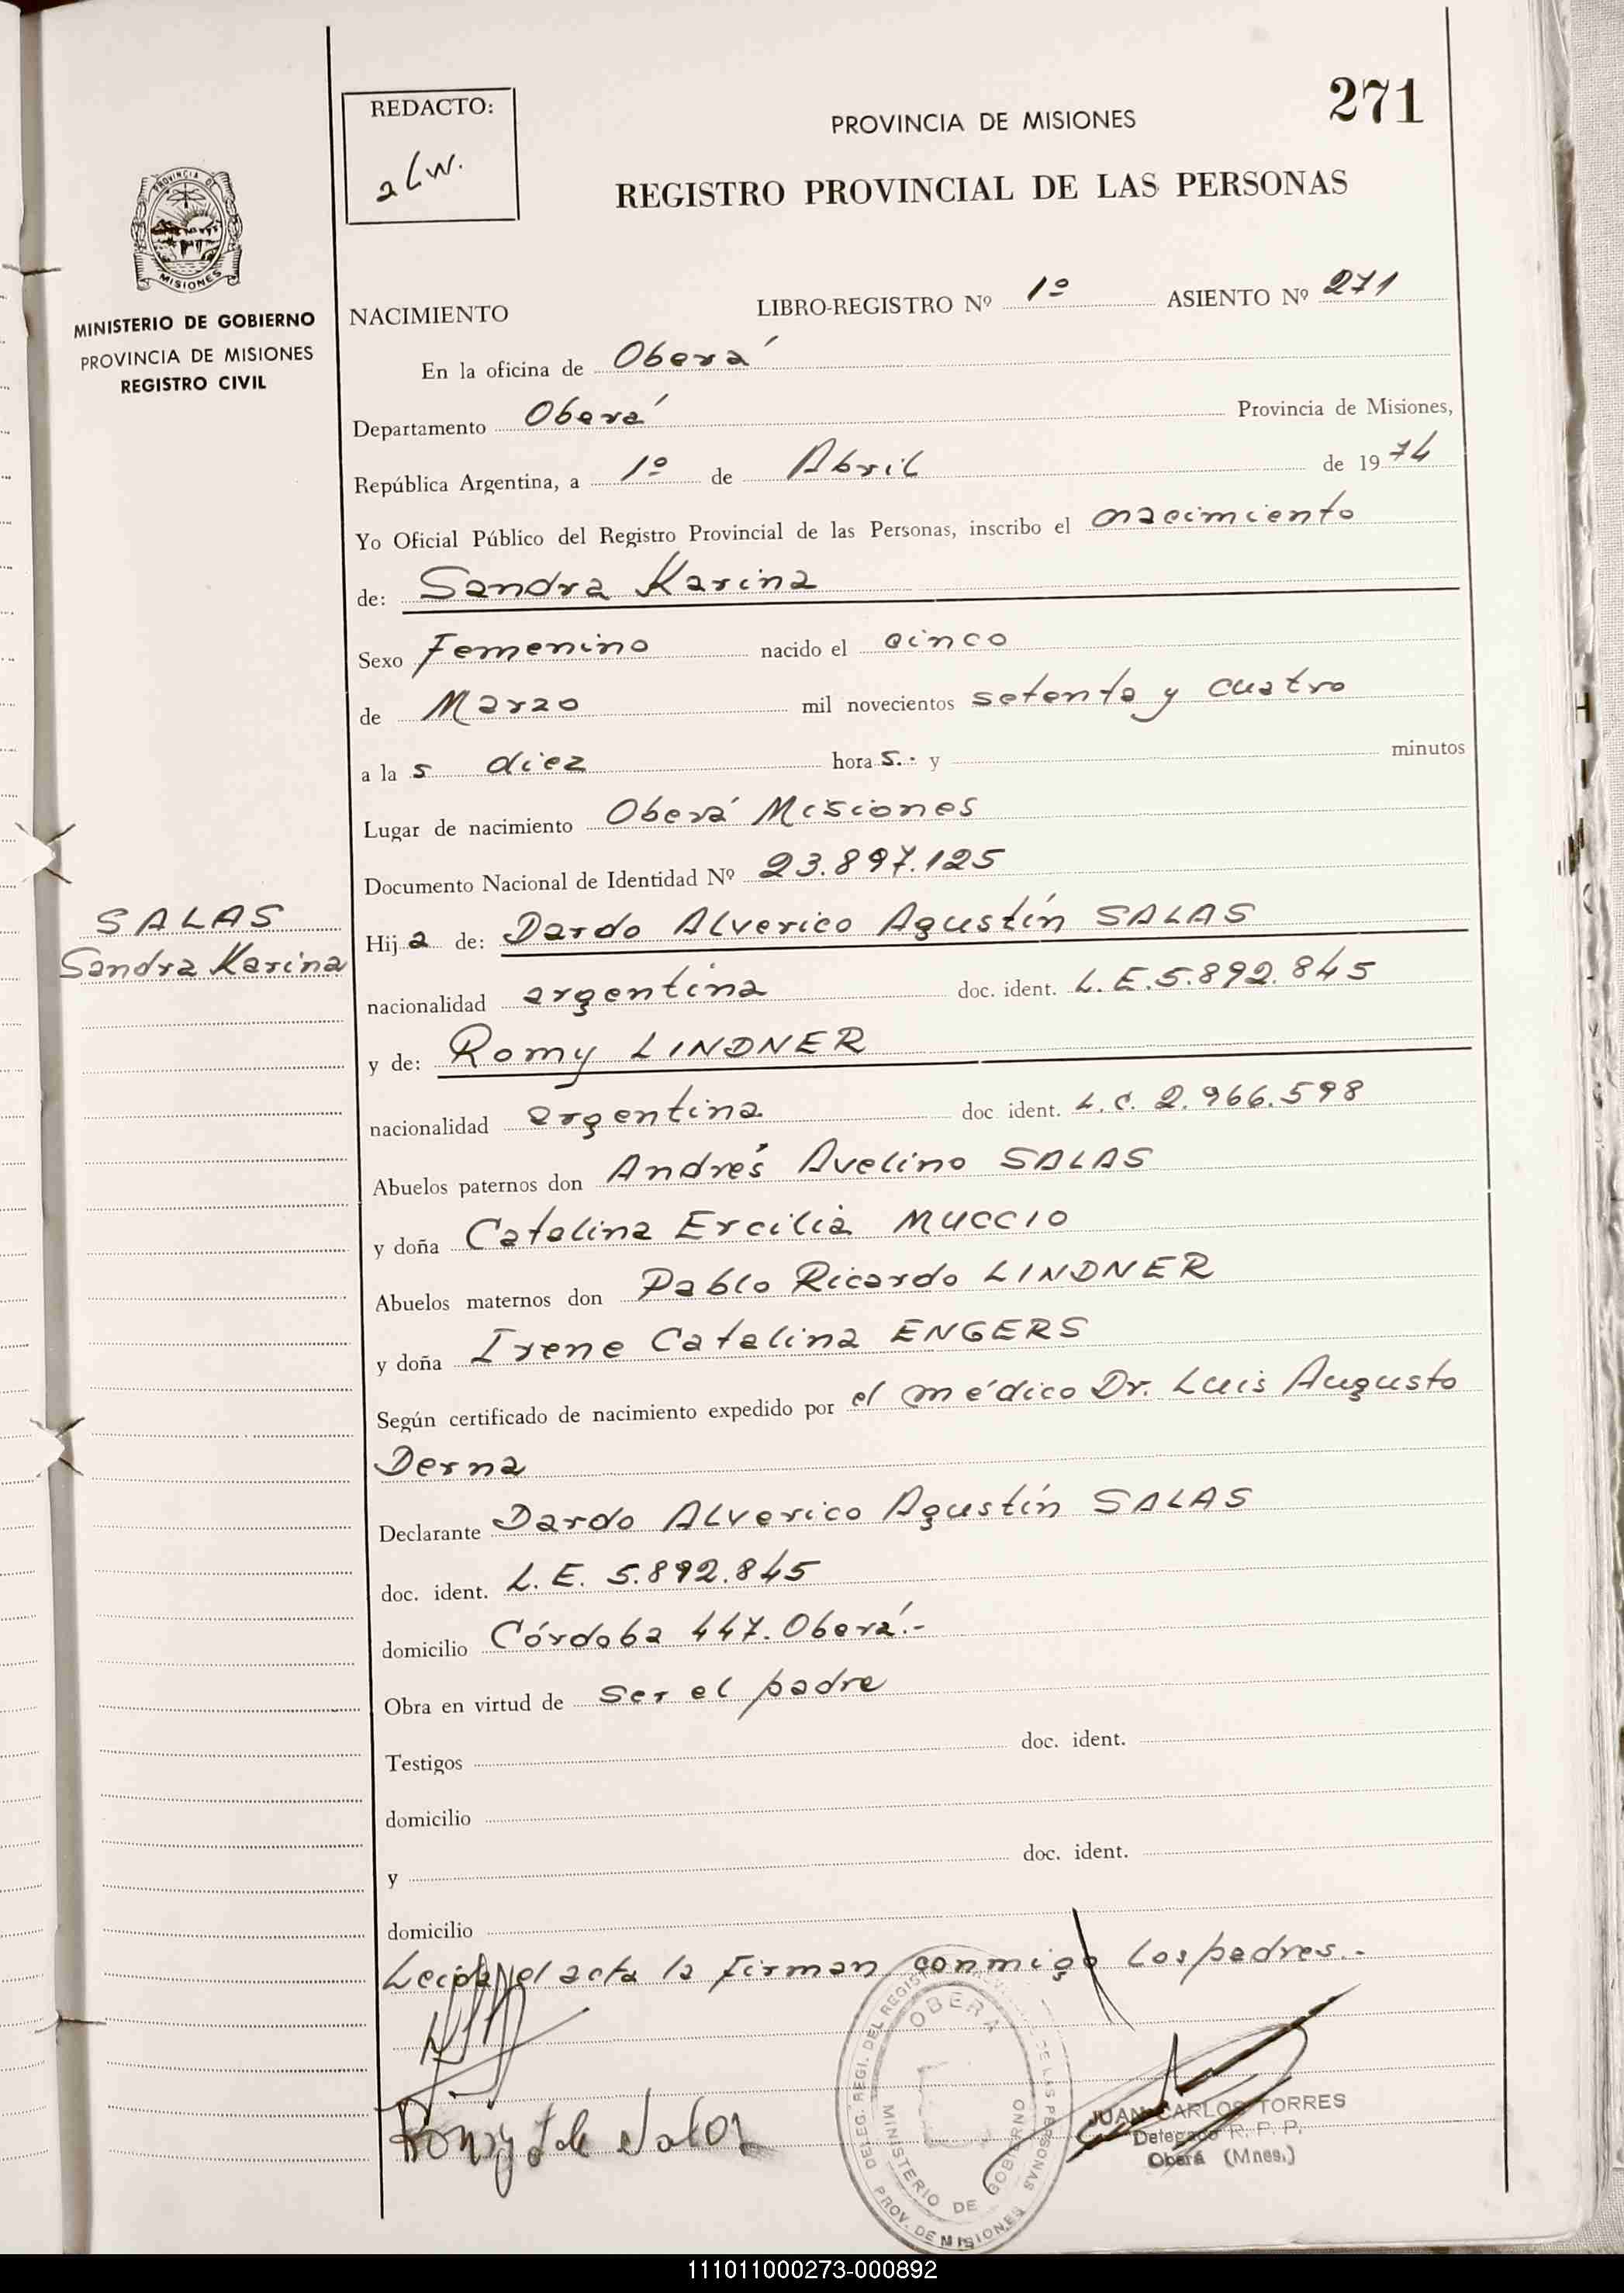 271
REDACTO:
PROVINCIA DE MISIONES
REGISTRO PROVINCIAL DE LAS PERSONAS
PROVINCIA DE
MISIONES
MINISTERIO DE GOBIERNO
PROVINCIA DE MISIONES
REGISTRO CIVIL
NACIMIENTO LIBRO-REGISTRO Nº 1º ASIENTO Nº 271
En la oficina de Oberá
Departamento Oberá Provincia de Misiones,
República Argentina, a 1º de Abril de 1974
Yo Oficial Público del Registro Provincial de las Personas, inscribo el nacimiento
de: Sandra Karina
Sexo Femenino nacido el cinco
de Marzo mil novecientos setenta y cuatro
a la s diez hora s.- y minutos
Lugar de nacimiento Oberá Misiones
Documento Nacional de Identidad Nº 23.897.125
SALAS
Sandra Karina
Hija de: Dardo Alverico Agustín SALAS
nacionalidad argentina doc. ident. L.E. 5.892.845
y de: Romy LINDNER
nacionalidad argentina doc ident. L.C. 2.966.598
Abuelos paternos don Andrés Avelino SALAS
y doña Catalina Ercilia MUCCIO
Abuelos maternos don Pablo Ricardo LINDNER
y doña Irene Catalina ENGERS
Según certificado de nacimiento expedido por el médico Dr. Luis Augusto
Derna
Declarante Dardo Alverico Agustín SALAS
doc. ident. L.E. 5.892.845
domicilio Córdoba 447. Oberá.-
Obra en virtud de ser el padre
Testigos doc. ident.
domicilio
y doc. ident.
domicilio
Leida el acta la firman conmigo los padres.-
Romy L de Salas
OBERA
DELEG. REGI. DEL REGIST DE LAS PERSONAS
MINISTERIO DE GOBIERNO
PROV. DE MISIONES
JUAN CARLOS TORRES
Delegado R. P. P.
Oberá (Mnes.)
111011000273-000892